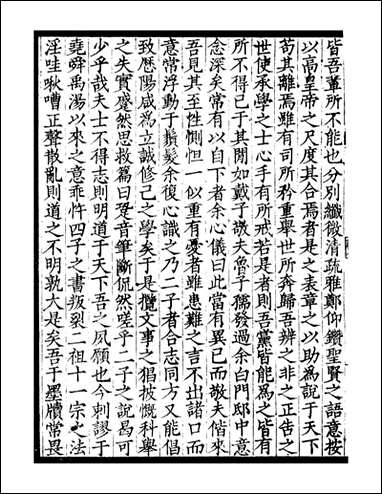 皆吾輩所不能也分別纖微清疏雅鄭仰鑽聖賢之語意按
以高皇帝之尺度其合焉者是之表章之以助為說于天下
苟其離焉雖有司所矜重舉世所奔歸吾辨之非之正告之
世使承學之士心手有所戒若是者則吾黨皆能為之皆有
所不得已于其間如戴子敬夫魯子孺發過余白門邸中意
念深矣常有以自下者余心儀曰此當有異已而敬夫偕來
吾見其至性惻怛一似重有憂者雖患難之言不出諸口而
意常浮動于鬚髮余復心識之乃二子者合志同方又能倡
致歷陽咸為立誠修己之學矣于是攬文事之猖披慨科舉
之失實蹙然思救篇曰跫音筆斷侃然嗟乎二子之說曷可
少乎哉夫士不得志則明道于天下吾之夙願也今刺謬于
堯舜禹湯以來之意乖忤四子之書叛裂二祖十一宗之法
淫哇啾嘈正聲散亂則道之不明孰大是矣吾于墨牘常畏